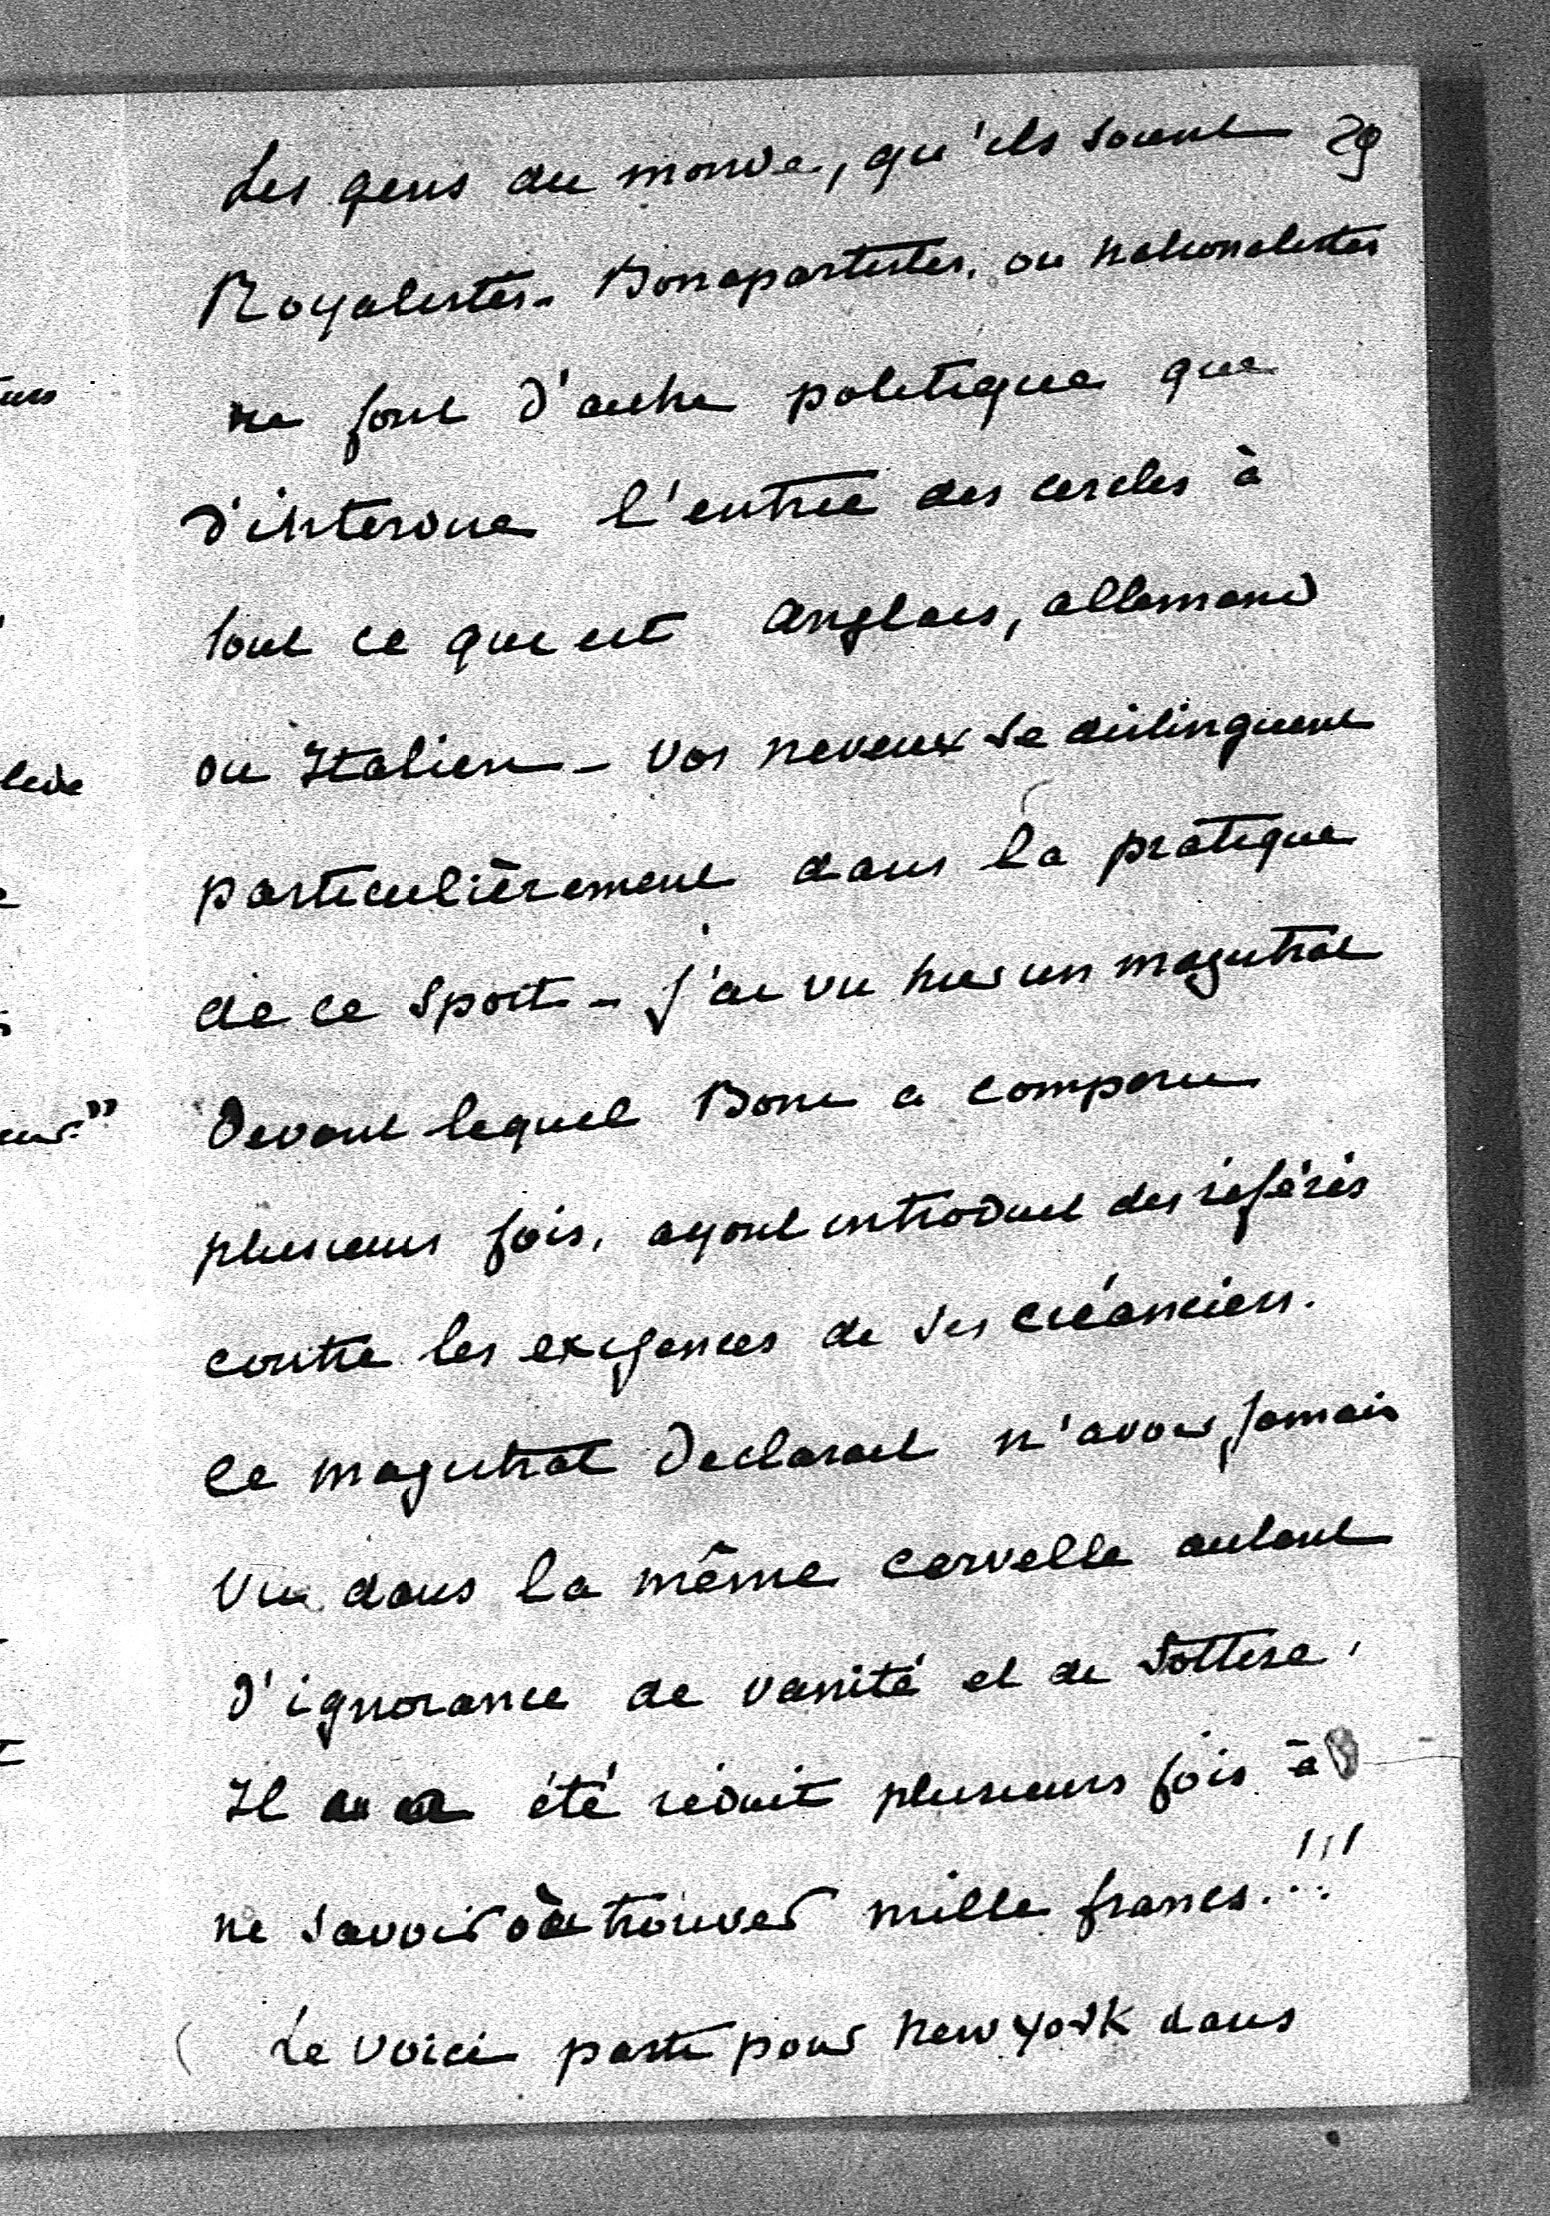 29
Les gens du monde, qu'ils soient
Royalistes - Bonapartistes, ou nationalistes
ne font d'autre politique que
d'interdire l'entrée des cercles à
tout ce qui est anglais, allemand
ou Italien - Vos neveux se distinguent
particulièrement dans la pratique
de ce sport - J'ai vu hier un magistrat
devant lequel Boni a comparu
plusieurs fois, ayant introduit des référés
contre les exigences de ses créanciers.
Ce magistrat déclarait n'avoir jamais
vu dans la même cervelle autant
d'ignorance de vanité et de sottise,
Il a été réduit plusieurs fois à
ne savoir où trouver mille francs...!!!
Le voici parti pour New York dans